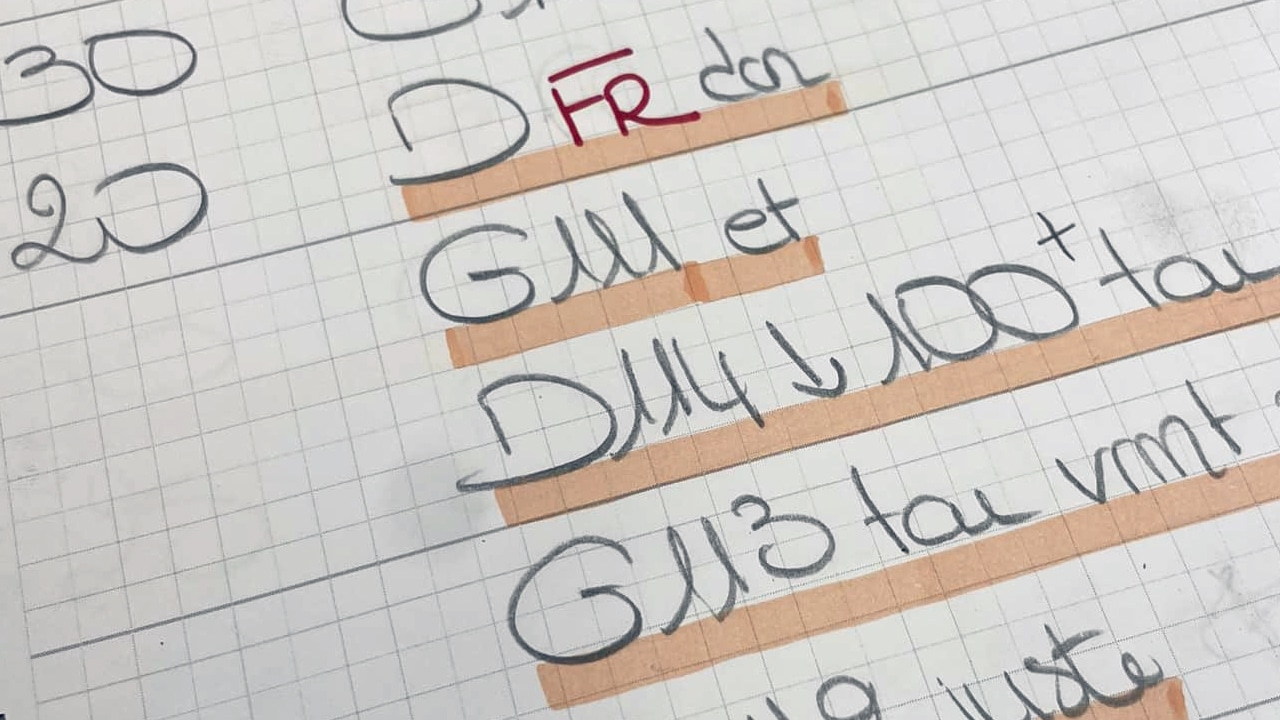 30
D FR dan
20
G111 et
D114 ↓ 100+ tau
G113 tau vmt
juste